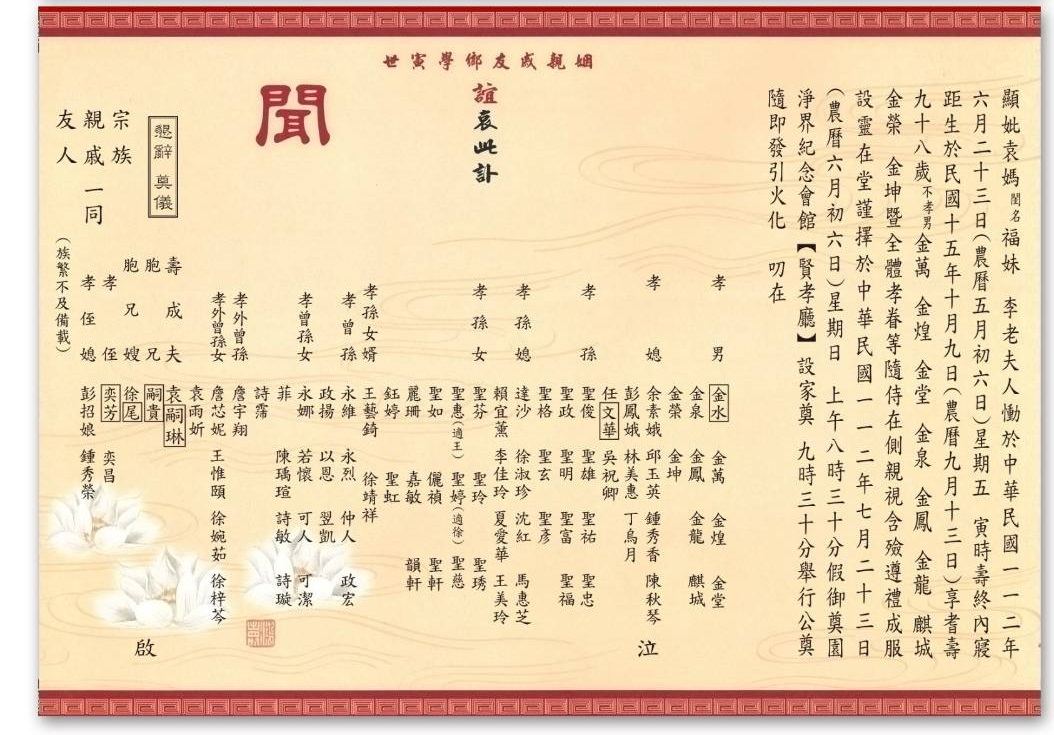 顯妣袁媽閨名福妹 李老夫人慟於中華民國一一二年
六月二十三日(農曆五月初六日)星期五 寅時壽終內寢
距生於民國十五年十月九日(農曆九月十三日)享耆壽
九十八歲不孝男金萬 金煌 金堂 金泉 金鳳 金龍 麒城
金榮 金坤暨全體孝眷等隨侍在側親視含殮遵禮成服
設靈在堂謹擇於中華民國一一二年七月二十三日
(農曆六月初六日)星期日 上午八時三十分假御奠園
淨界紀念會館【賢孝廳】設家奠 九時三十分舉行公奠
隨即發引火化 叨在
姻親戚友鄉學寅世
誼哀此訃
聞
孝男 金水 金萬 金煌 金堂
金泉 金鳳 金龍 麒城
金榮 金坤
孝媳 余素娥 邱玉英 鍾秀香 陳秋琴
彭鳳娥 林美惠 丁烏月
任文華 吳祝卿
孝孫 聖俊 聖雄 聖祐 聖忠
聖政 聖明 聖富 聖福
聖格 聖玄 聖彥
孝孫媳 達沙 徐淑珍 沈紅 馬惠芝
賴宜薰 李佳玲 夏愛華 王美玲
孝孫女 聖芬 聖玲 聖琇
聖惠(適王) 聖婷(適徐) 聖慈
聖如 儷禎 聖軒
麗珊 嘉敏 韻軒
鈺婷 聖虹
孝孫女婿 王藝錡 徐靖祥
孝曾孫 永維 永烈 仲人 政宏
政揚 以恩 翌凱
孝曾孫女 永娜 若懷 可人 可潔
菲 陳瑀瑄 詩敏 詩璇
詩霈
孝外曾孫 詹宇翔
孝外曾孫女 詹芯妮 王惟頤 徐婉茹 徐梓芩
袁雨妡
泣
壽成夫 袁嗣琳
胞兄 嗣貴
胞兄嫂 徐尾
孝侄 奕芳 奕昌
孝侄媳 彭招娘 鍾秀榮
啟
(族繁不及備載)
懇辭 奠儀
宗族
親戚一同
友人